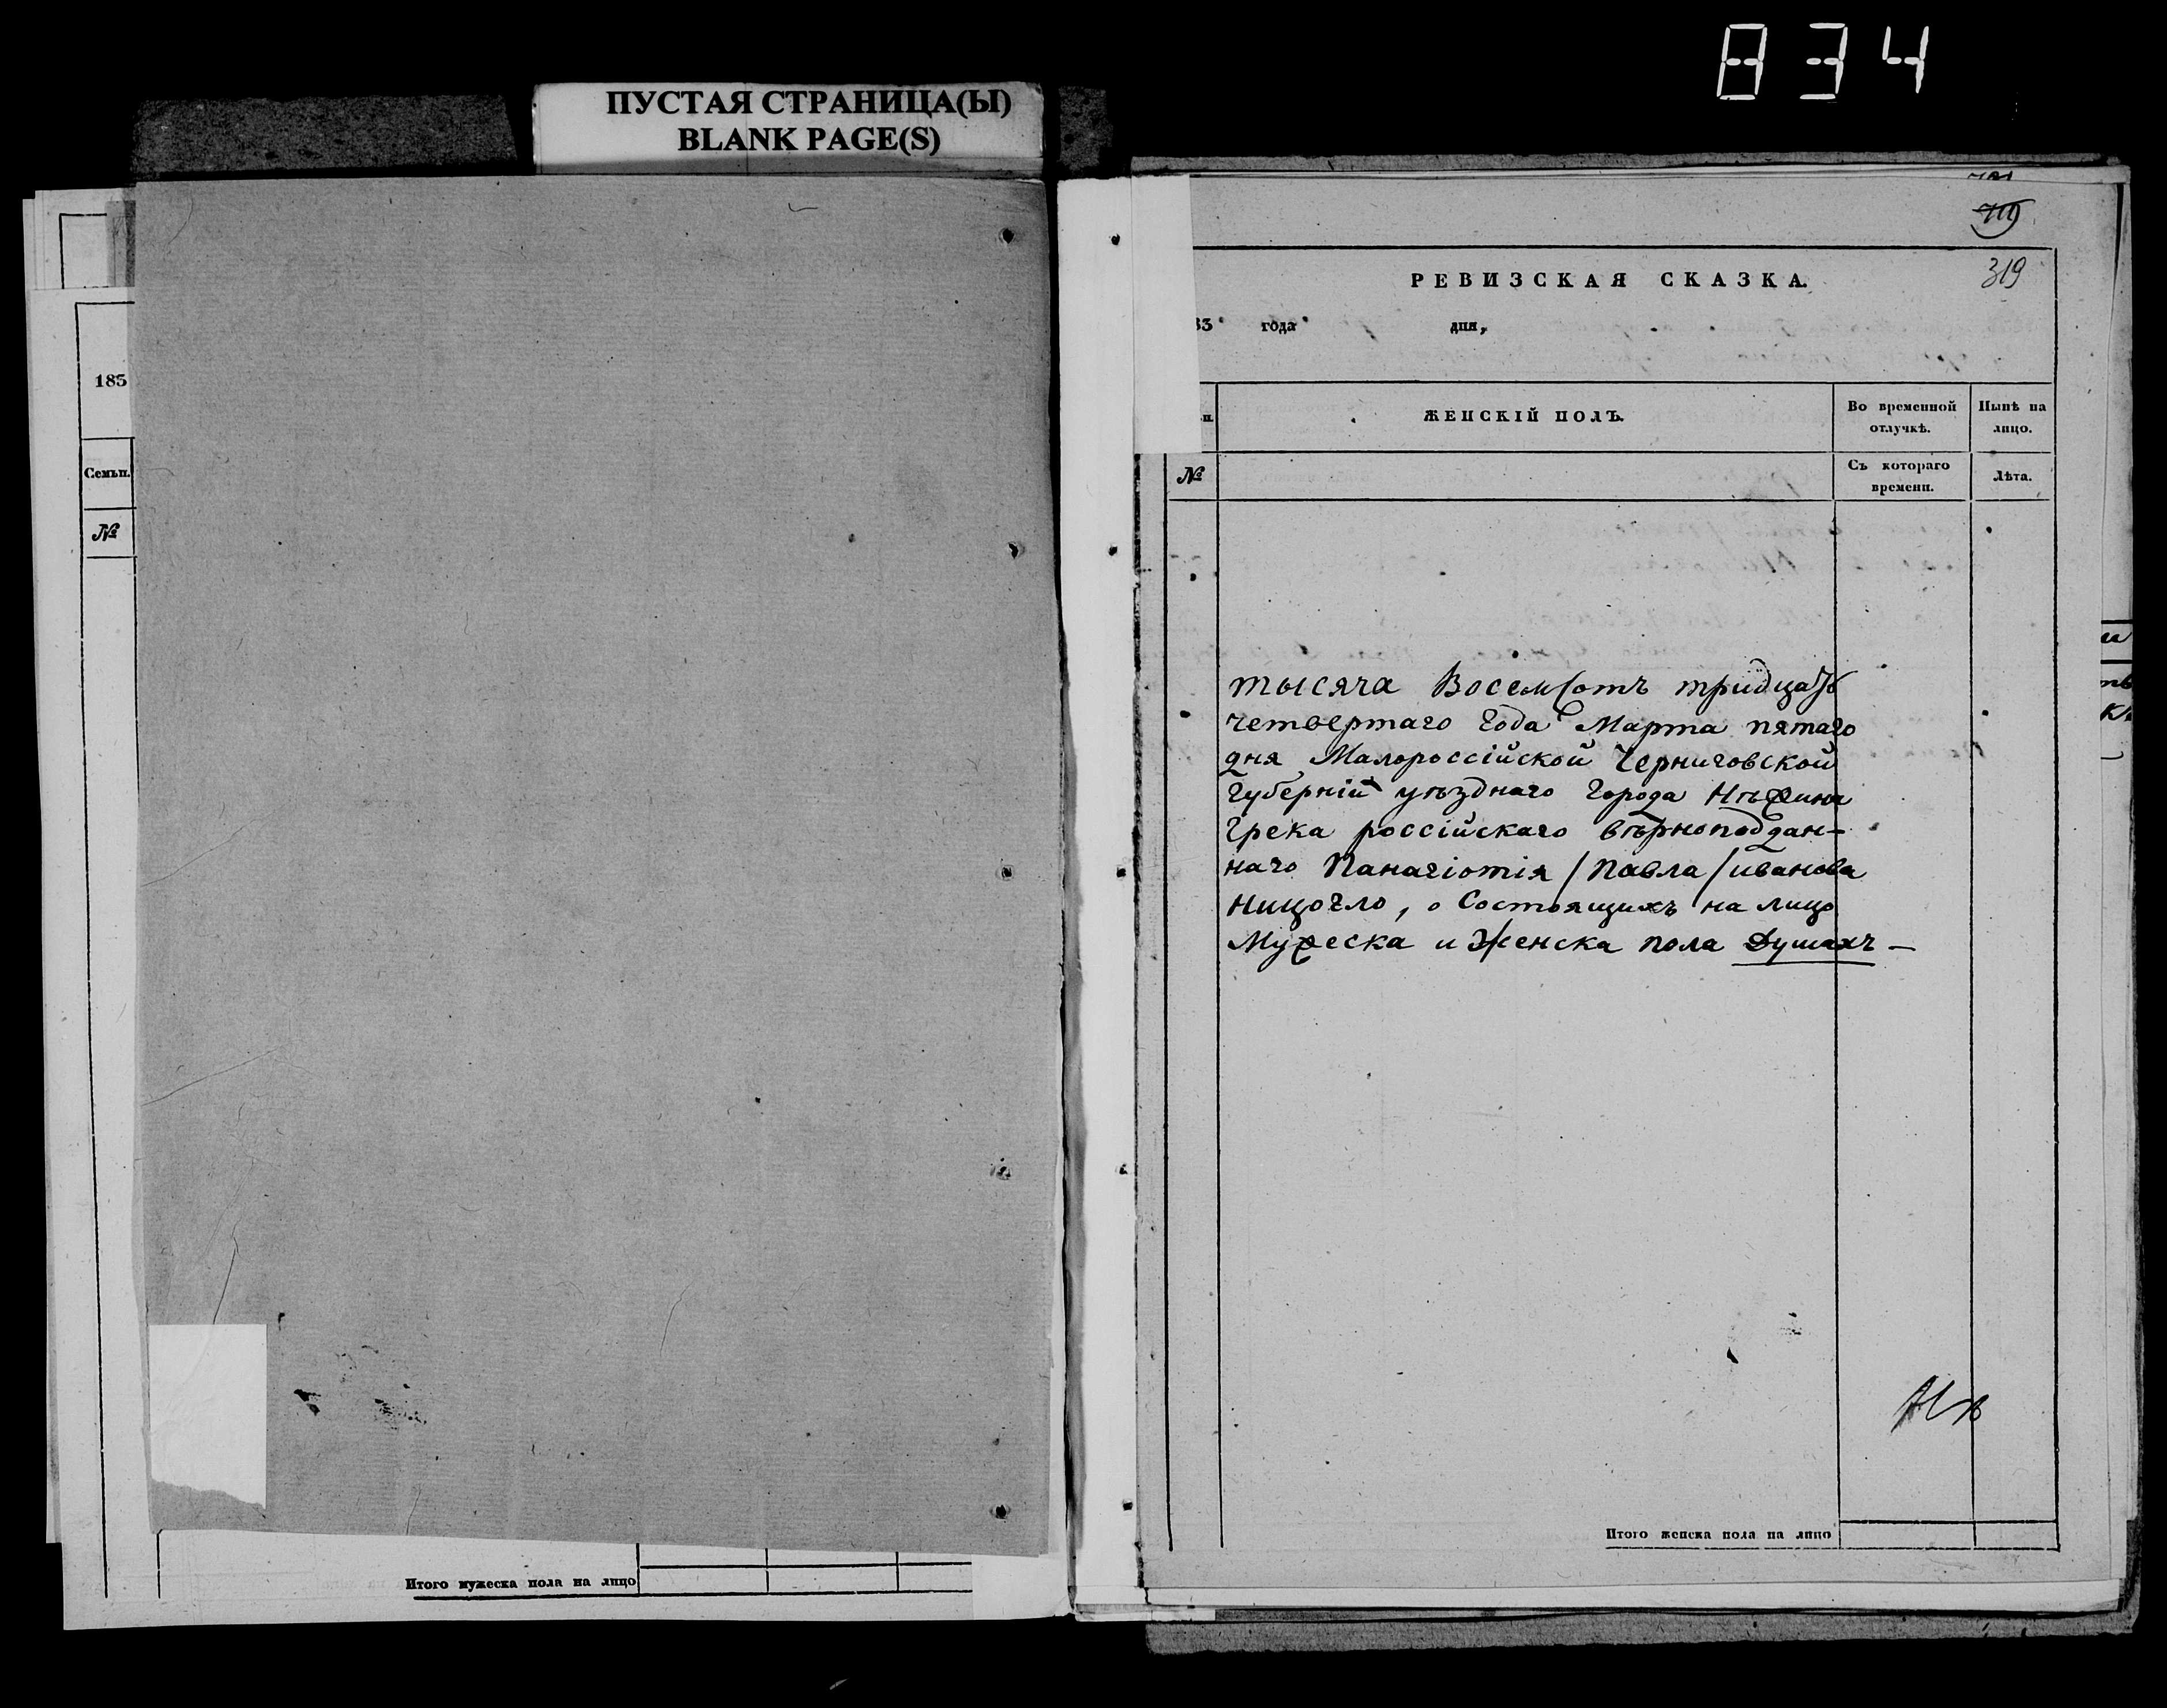 834
ПУСТАЯ СТРАНИЦА(Ы)
BLANK PAGE(S)
185
Семьи.
№
Итого мужеска пола на лицо
719
319
РЕВИЗСКАЯ СКАЗКА.
83 года дня,
ЖЕНСКІЙ ПОЛЪ.
Во временной отлучкѣ.
Нынѣ на лицо.
№
Съ котораго времени.
Лѣта.
тысяча Восемсотъ тридцать
четвертаго года Марта пятаго
дня Малороссійской Черниговской
губерніи уѣзднаго города Нѣжина
грека россійскаго вѣрноподдан-
наго Панагіотія / Павла / иванова
Ницогло, о Состоящихъ на лицо
Мужеска и Женска пола Душахъ —
Итого женска пола на лицо